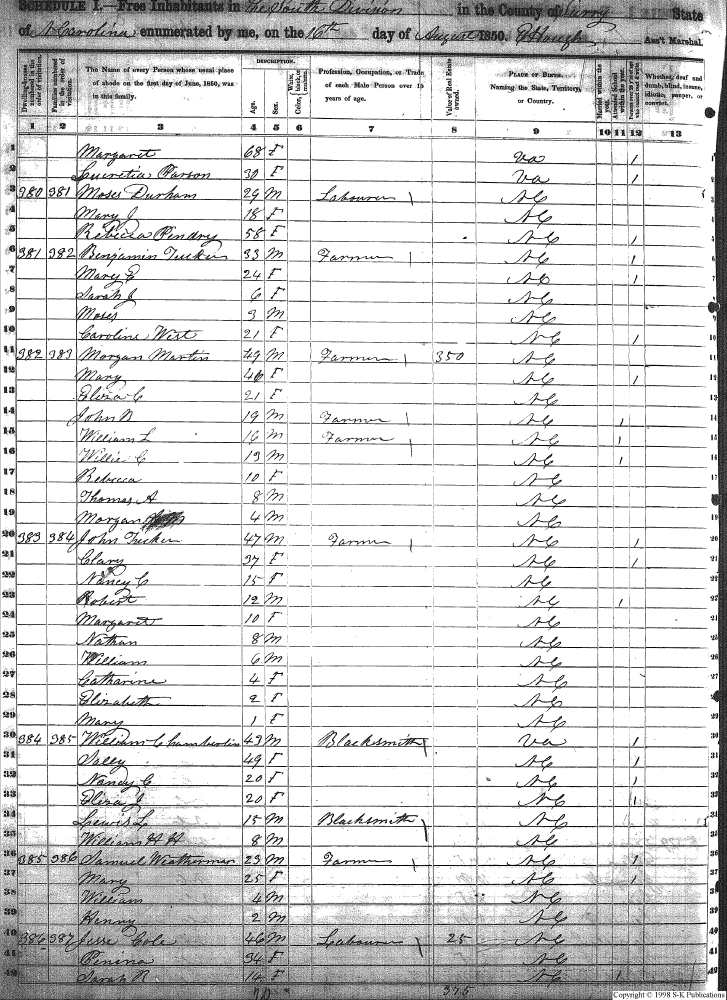 SCHEDULE I.—Free Inhabitants in the South Division in the County of Surry State
of N Carolina enumerated by me, on the 16th day of August 1850. Ass't Marshal.
Dwelling-houses numbered in the order of visitation.
Families numbered in the order of visitation.
The Name of every Person whose usual place of abode on the first day of June, 1850, was in this family.
DESCRIPTION.
Age.
Sex.
White, black, or mulatto.
Color,
Profession, Occupation, or Trade of each Male Person over 15 years of age.
Value of Real Estate owned.
PLACE OF BIRTH. Naming the State, Territory, or Country.
Married within the year.
Attended School within the year.
Whether deaf and dumb, blind, insane, idiotic, pauper, or convict.
1 2 3 4 5 6 7 8 9 10 11 12 13
1 Margaret 68 F Va /
2 Lucretia Parson 30 F Va /
3 380 381 Moses Durham 29 M Labourer / NC
4 Mary J 18 F NC
5 Rebecca Pendry 58 F NC /
6 381 382 Benjamin Tucker 33 M Farmer / NC /
7 Mary E 24 F NC /
8 Sarah J 6 F NC
9 Moses 3 M NC
10 Caroline West 21 F NC /
11 382 383 Morgan Martin 49 M Farmer / 350 NC
12 Mary 46 F NC /
13 Eliza C 21 F NC
14 John N 19 M Farmer / NC /
15 William L 16 M Farmer / NC /
16 Willie C 13 M NC /
17 Rebecca 10 F NC
18 Thomas A 8 M NC
19 Morgan 4 M NC
20 383 384 John Tucker 47 M Farmer / NC /
21 Clary 37 F NC /
22 Nancy C 15 F NC
23 Robert 12 M NC /
24 Margaret 10 F NC
25 Nathan 8 M NC
26 William 6 M NC
27 Catharine 4 F NC
28 Elizabeth 2 F NC
29 Mary 1 F NC
30 384 385 William C Chamberlin 43 M Blacksmith / Va /
31 Salley 49 F NC /
32 Nancy C 20 F NC /
33 Eliza J 20 F NC /
34 Lewis L 15 M Blacksmith / NC
35 William H H 8 M NC
36 385 386 Samuel Weatherman 23 M Farmer / NC /
37 Mary 25 F NC /
38 William 4 M NC
39 Henry 2 M NC
40 386 387 Jesse Cole 46 M Labourer / 25 NC
41 Penina 34 F NC
42 Sarah R 14 F NC /
375
Copyright © 1998 S-K Publications